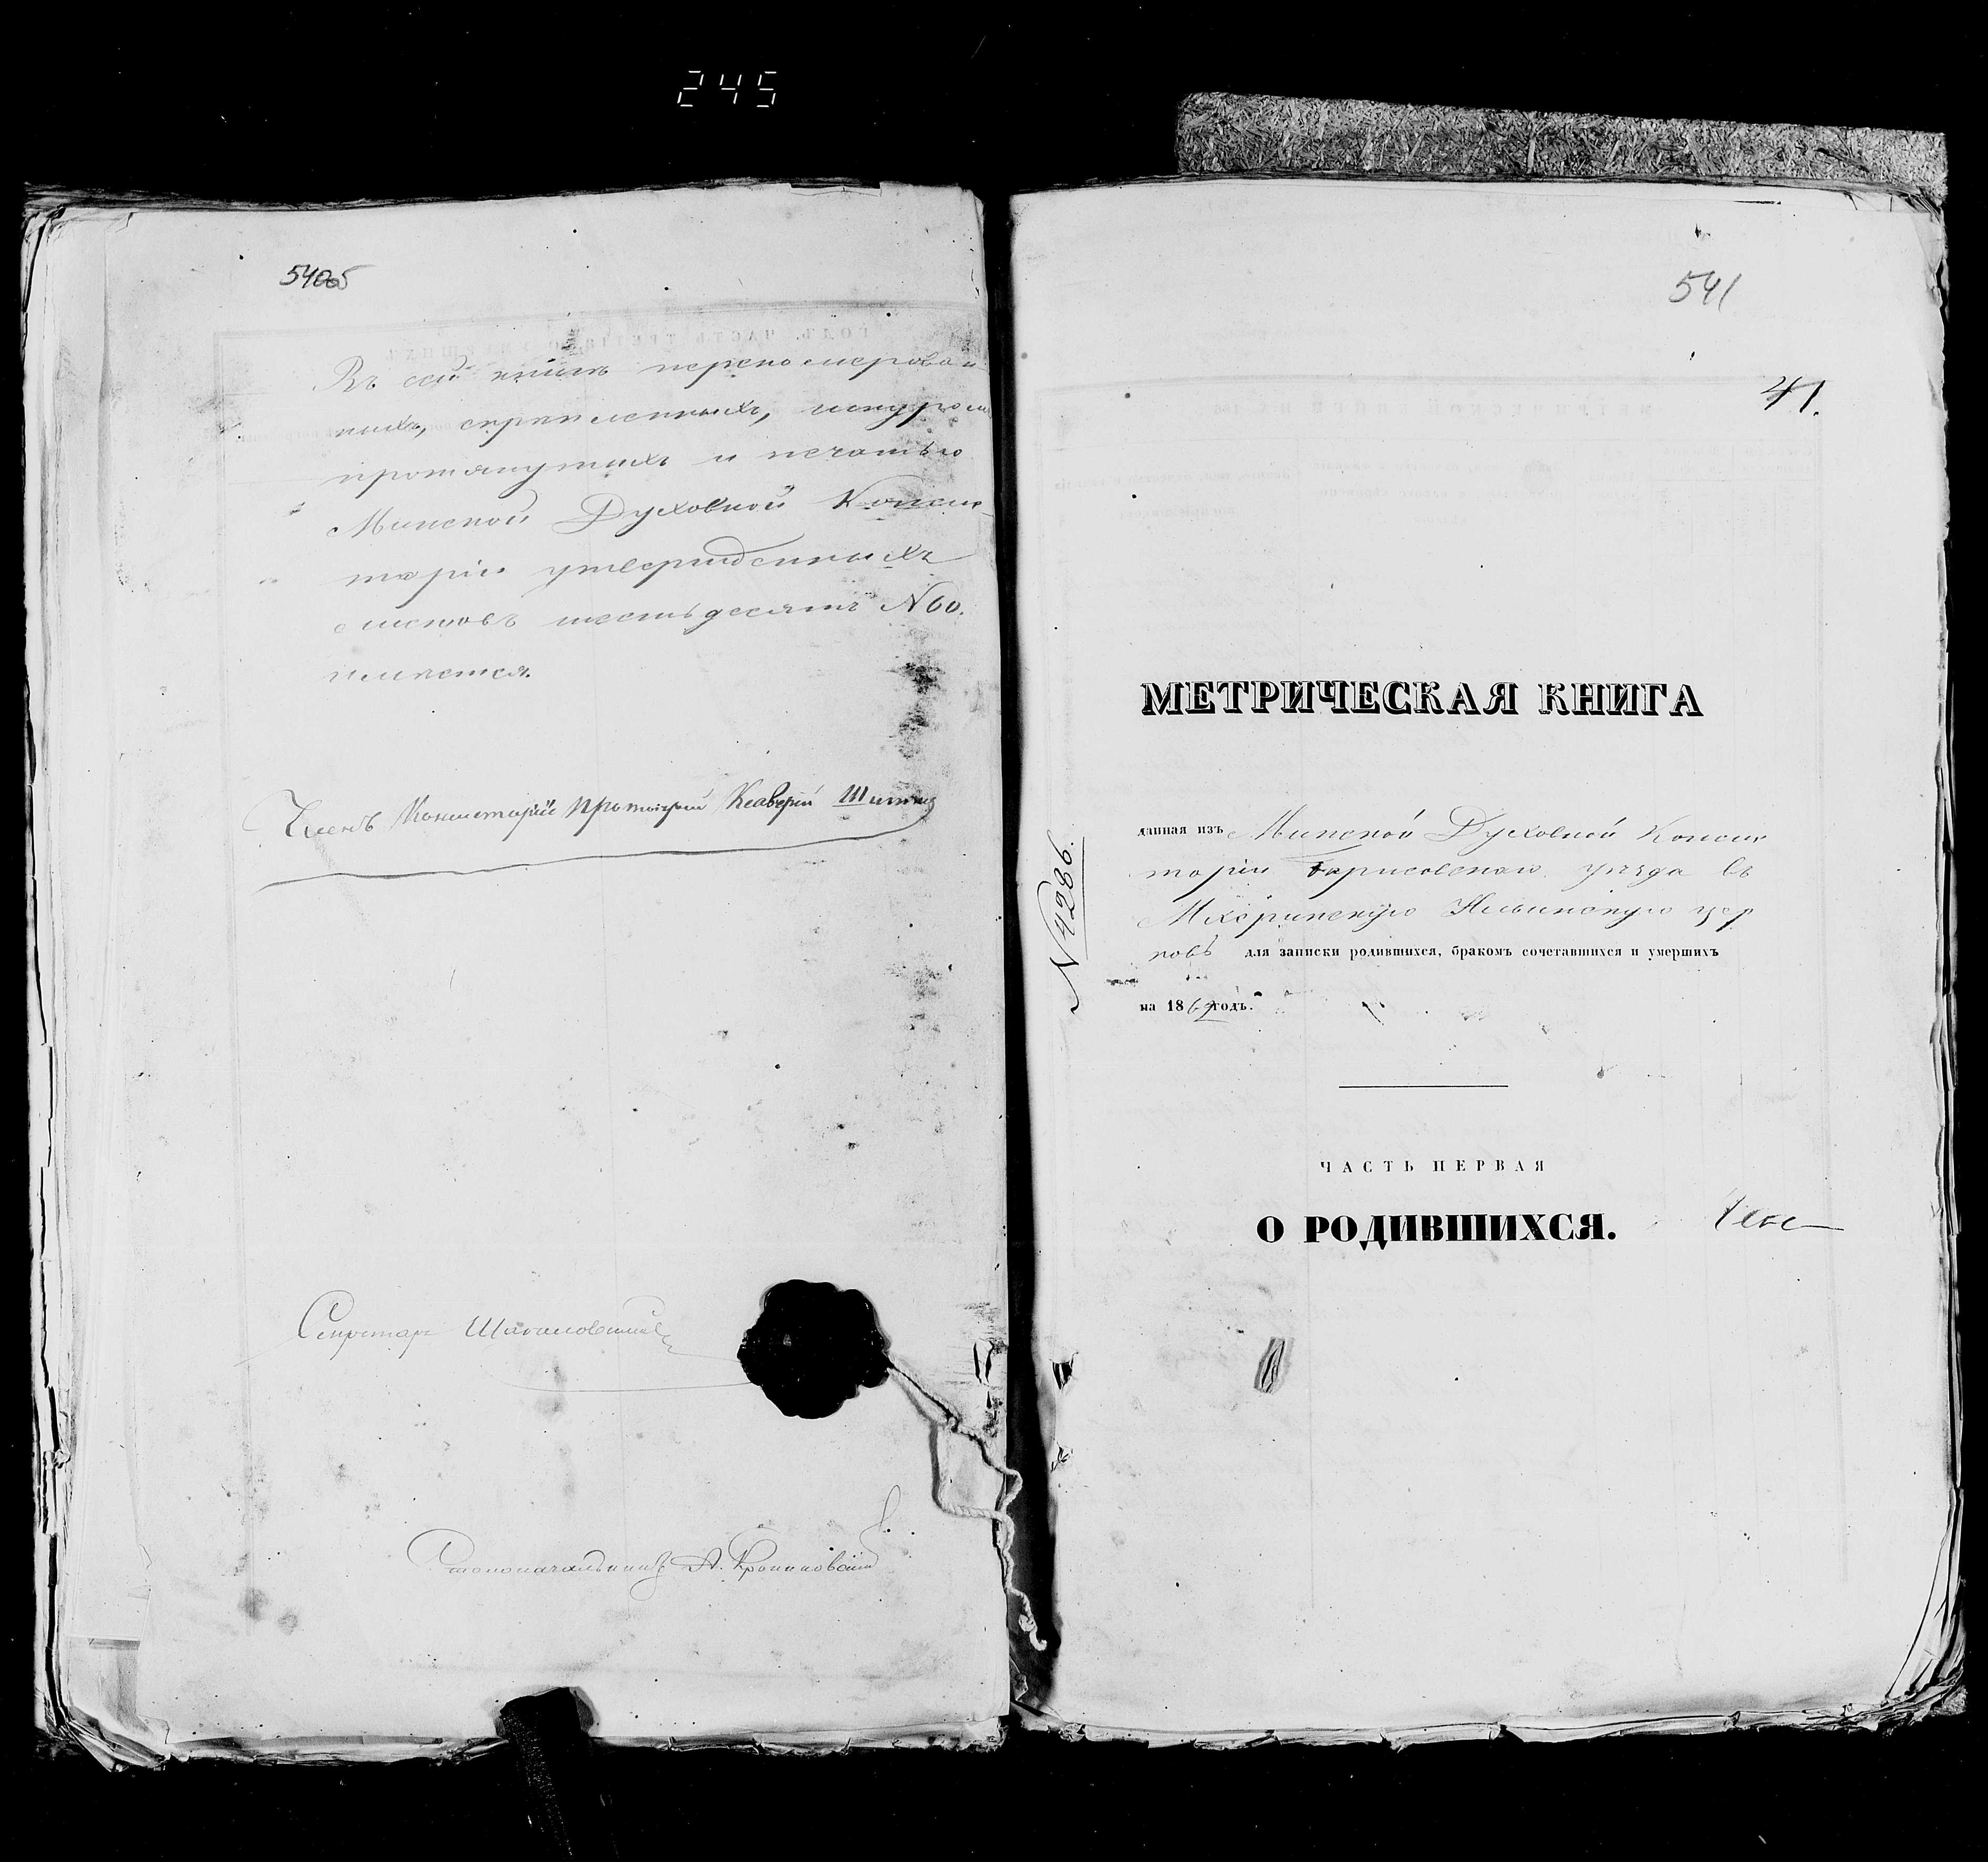 245
540об
Въ сей книгѣ перенумерован-
ныхъ, скрѣпленныхъ, шнуромъ
протянутыхъ и печатью
Минской Духовной Консис-
торіи утвержденныхъ
листовъ шестьдесятъ N 60.
имѣется.
Членъ Консисторіи Протоіерей
Секретарь
Столоначальникъ А.
541
41.
МЕТРИЧЕСКАЯ КНИГА
N 4286.
данная изъ Минской Духовной Консис
торіи Борисовскаго уѣзда въ
Ильинскую цер
ковь для записки родившихся, бракомъ сочетавшихся и умершихъ
на 186 годъ.
ЧАСТЬ ПЕРВАЯ
О РОДИВШИХСЯ.